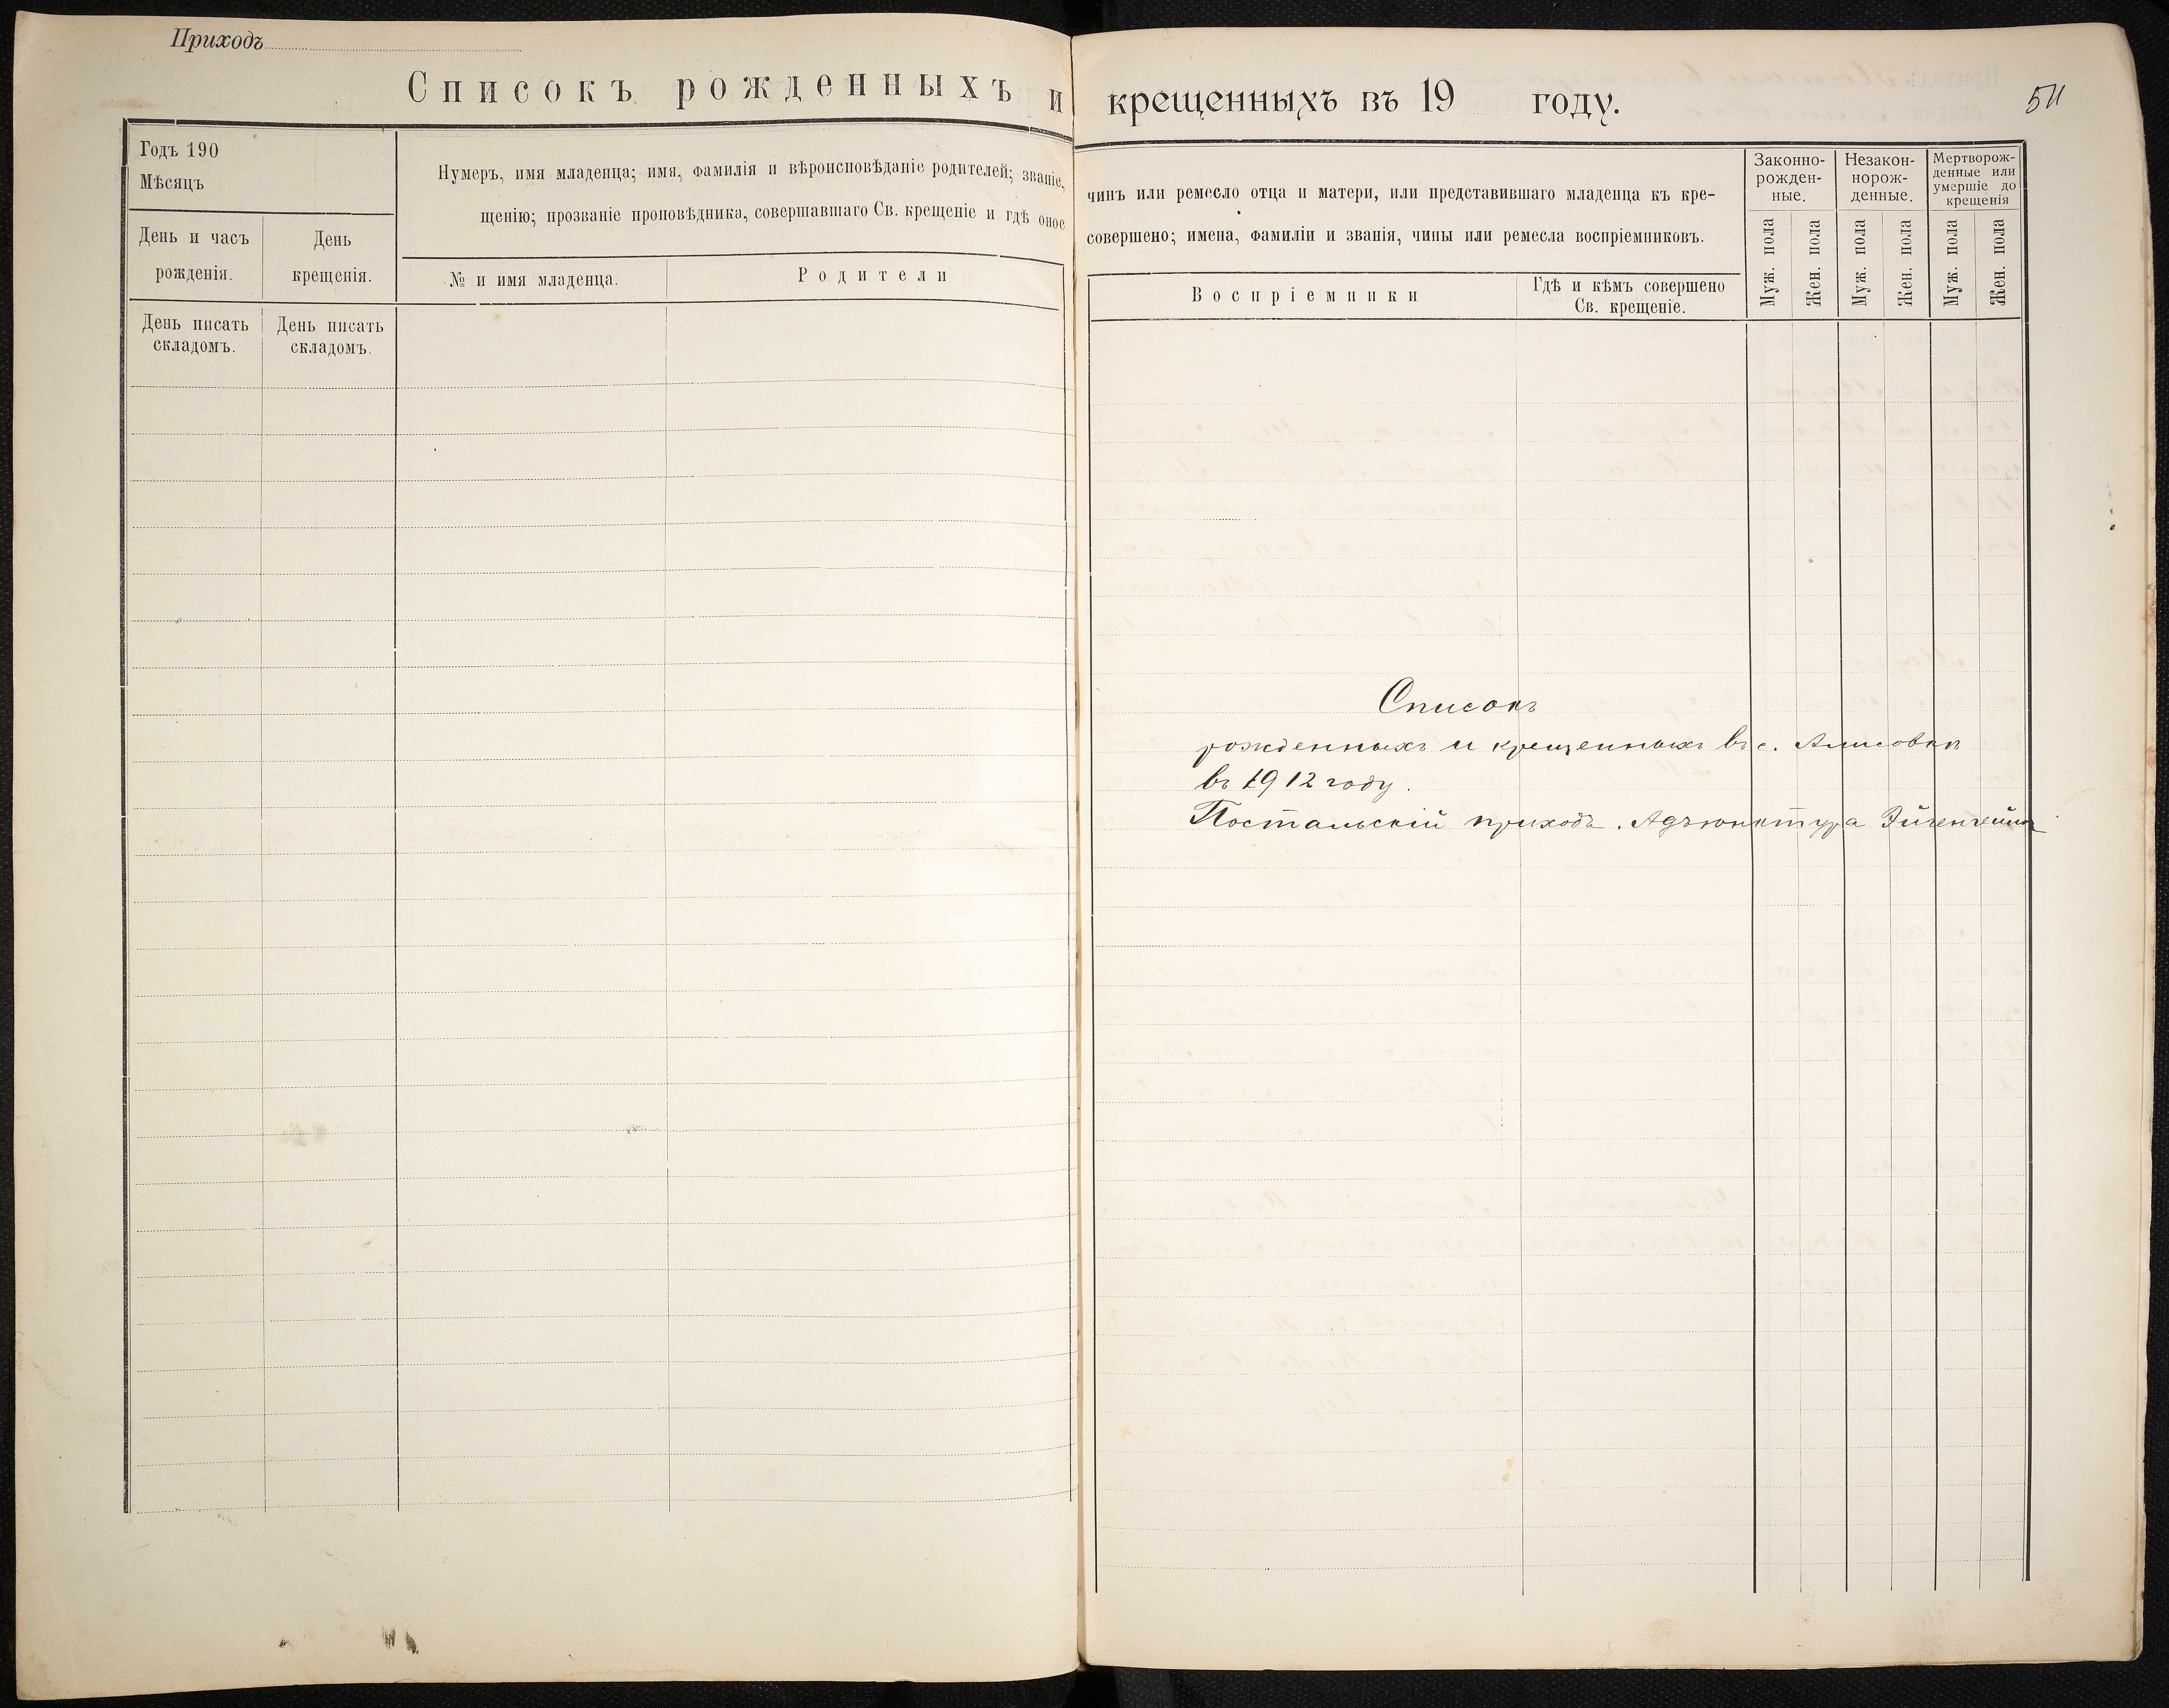 Приходъ
Списокъ рожденныхъ и крещенныхъ въ 19 году.
511
Годъ 190
Мѣсяцъ
День и часъ рожденія.
День крещенія.
Нумеръ, имя младенца; имя, фамилія и вѣроисповѣданіе родителей; званіе, чинъ или ремесло отца и матери, или представившаго младенца къ кре-
щенію; прозваніе проповѣдника, совершавшаго Св. крещеніе и гдѣ оное совершено; имена, фамиліи и званія, чины или ремесла воспріемниковъ.
№ и имя младенца.
Родители
Воспріемники
Гдѣ и кѣмъ совершено
Св. крещеніе.
Законно-
рожден-
ные.
Незакон-
норож-
денные.
Мертворож-
денные или
умершіе до
крещенія
Муж. пола
Жен. пола
Муж. пола
Жен. пола
Муж. пола
Жен. пола
День писать
складомъ.
День писать
складомъ.
Списокъ
рожденныхъ и крещенныхъ въ с.
въ 1912 году.
Постальскій приходъ. Адъюнктура Эйгенгеймъ